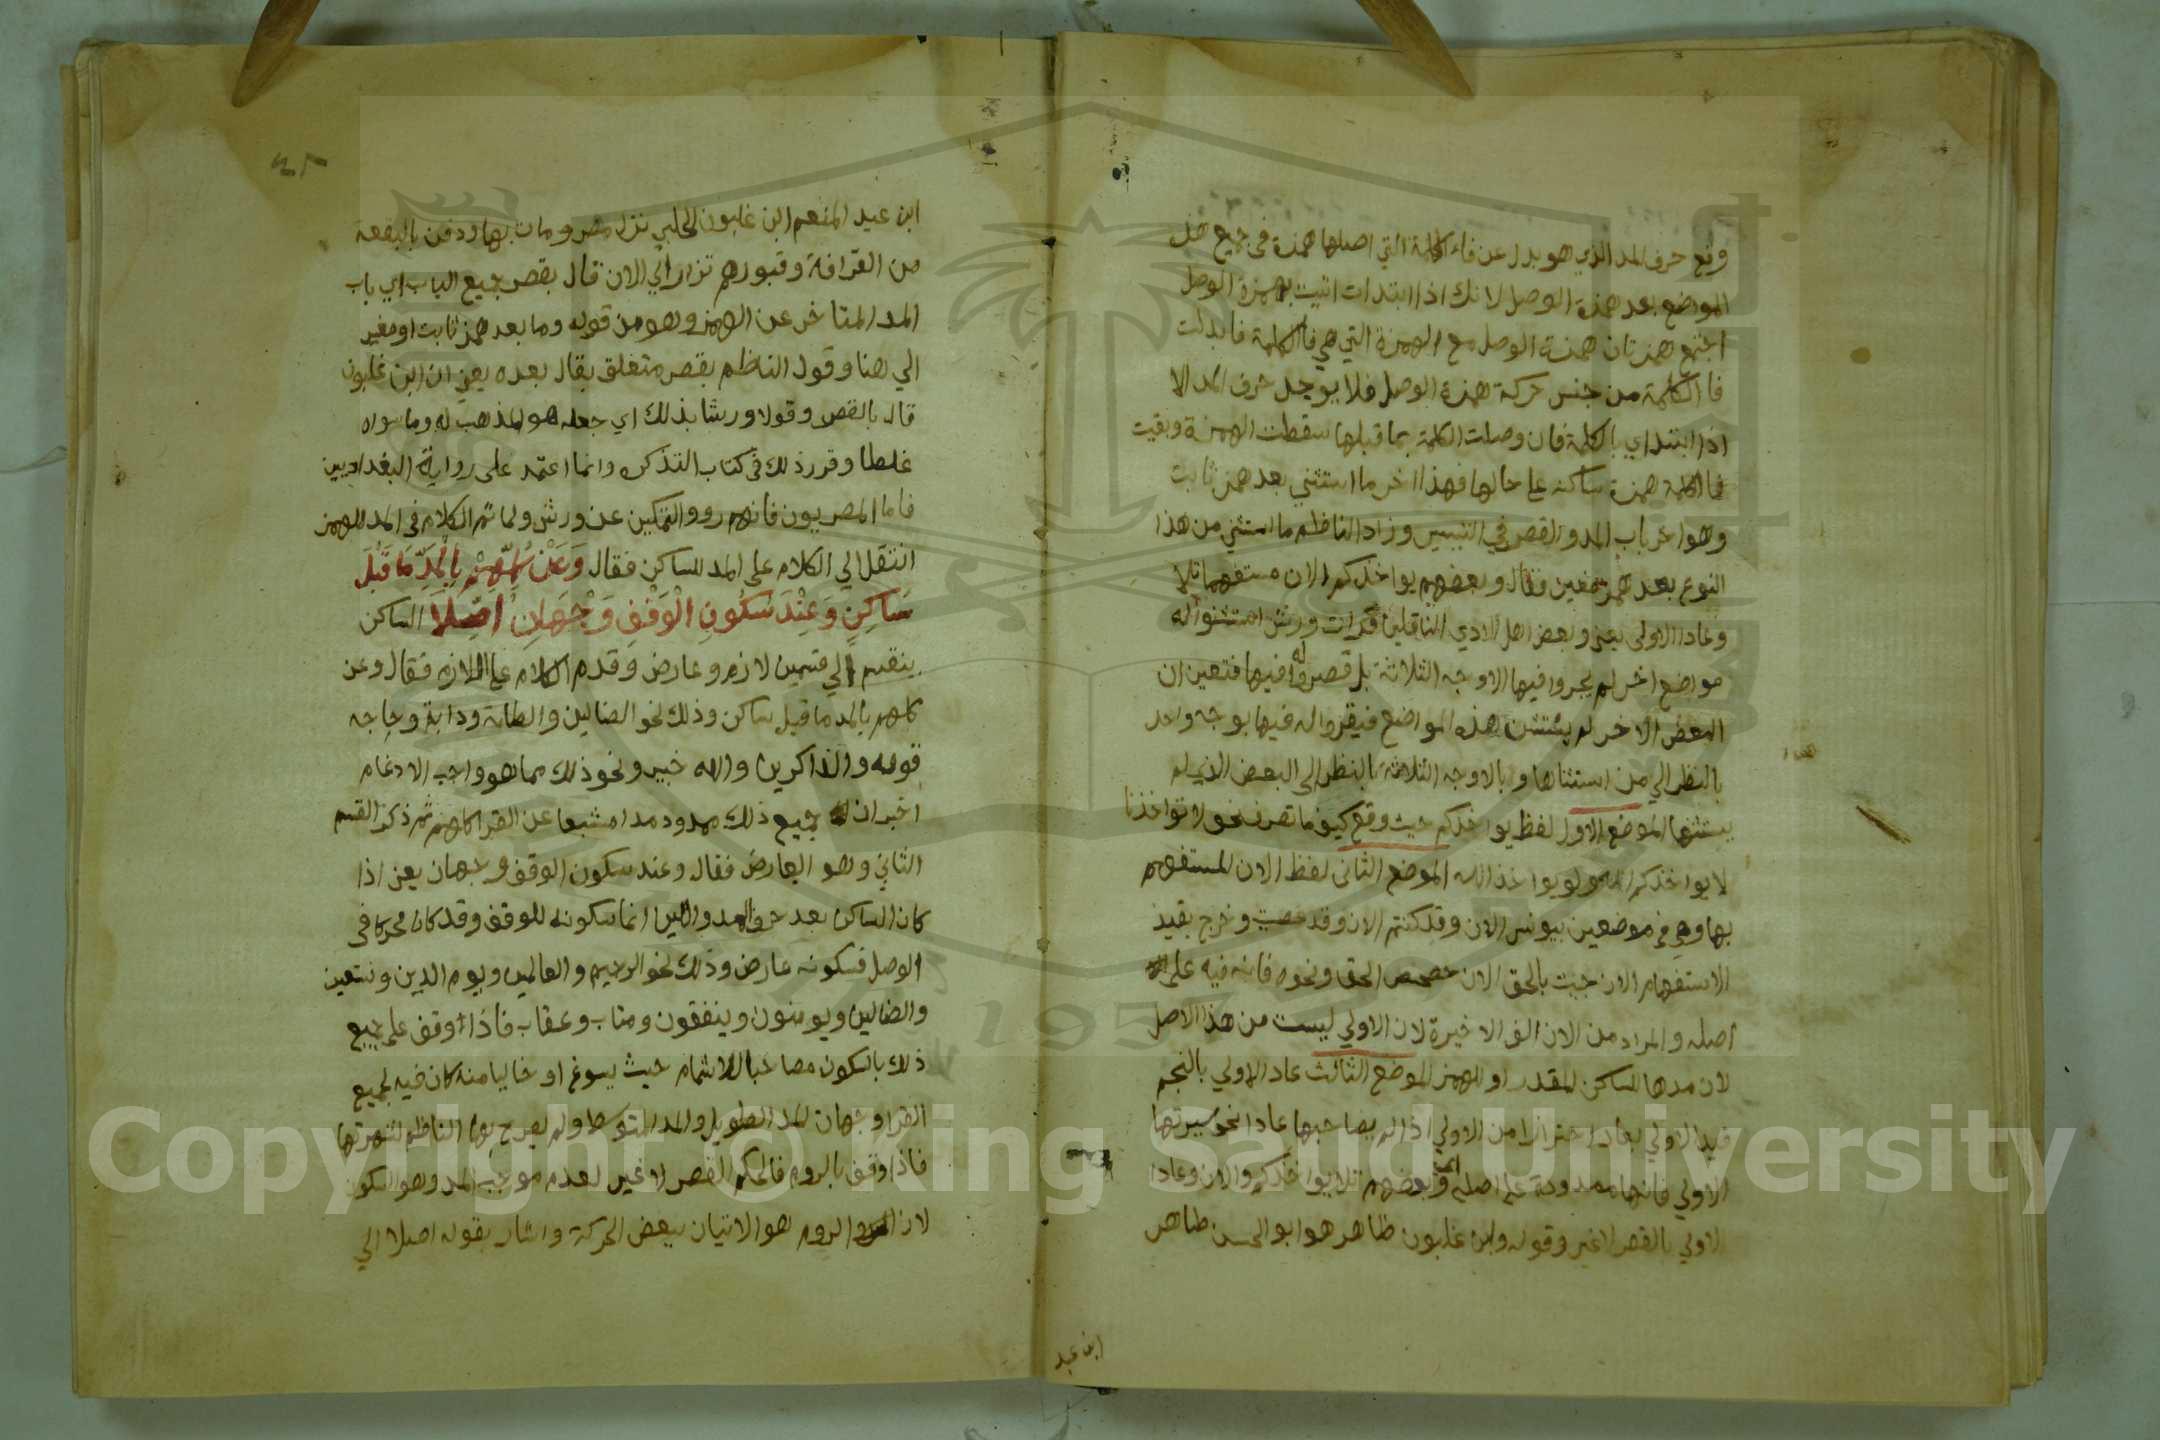 وقع حرف المد الذي هو بدل عن فاء الكلمة التي اصلها همزة في جميع هذه
المواضع بعد همزة الوصل لانك اذا ابتدات اتيت بهمزة الوصل
اجتمع همزتان همزة الوصل مع الهمزة التي هي فا الكلمة فابدلت
فا الكلمة من جنس حركة همزة الوصل فلا يوجد حرف المد الا
اذا ابتداي بالكلمة فان وصلت الكلمة بما قبلها سقطت الهمزة وبقيت
فا الكلمة همزة ساكنة على حالها فهذا اخر ما استثني بعد همز ثابت
وهو اخر باب المد والقصر في التيسير وزاد الناظم ما استثني من هذا
النوع بعد همز مغير فقال وبعضهم يواخذكم الان مستفهما تلا
وعادا الاولى يعني وبعض اهل الادي الناقلين قرات ورش استثنوا له
مواضع اخر لم يجروا فيها الاوجه الثلاثة بل قصروا له فيها فتعين ان
البعض الاخر لم يستثن هذه المواضع فيقروا له فيها بوجه واحد
بالنظر الي من استثناها وبالاوجه الثلاثة بالنظر الى البعض الذي لم
يستثنها الموضع الاول لفظ يواخذكم حيث وقع كيف ما تصرف نحو لا تواخذنا
لا يواخذكم الله ولو يواخذ الله الموضع الثاني لفظ الان المستفهم
بها وهي في موضعين بيونس الان وقد كنتم الان وقد عصيت وخرج بقيد
الاستفهام الان جيت بالحق الان حصحص الحق ونحوه فانه فيه على
اصله والمراد من الان الف الاخيرة لان الاولي ليست من هذا الاصل
لان مدها للساكن المقدر او للهمز الموضع الثالث عاد الاولي بالنجم
قيد الاولي بعادا احترازا من الاولي اذا لم يصاحبها عادا نحو سيرتها
الاولي فانها ممدودة على اصله اي وبعضهم تلا يواخذكم والان وعادا
الاولي بالقصر لا غير وقوله وابن غلبون طاهر هو ابو الحسن طاهر
ابن عبد
ابن عبد المنعم ابن غلبون الحلبي نزل مصر ومات بها ودفن بالبقعة
من القرافة وقبورهم تزار الي الان قال بقصر جميع الباب اي باب
المد المتاخر عن الهمز وهو من قوله وما بعد همز ثابت او مغير
الي هنا وقول الناظم بقصر متعلق بقال بعده يعني ان ابن غلبون
قال بالقصر وقولا ورشا بذلك اي جعله هو المذهب له وما سواه
غلطا وقرر ذلك في كتاب التذكرة وانما اعتمد على رواية البغداديين
فاما المصريون فانهم رووا التمكين عن ورش ولما تم الكلام في المد للهمز
انتقل الي الكلام على المد للساكن فقال وَعَنْ كُلِّهِمْ بِالْمَدِّ مَا قَبْلَ
سَاكِنٍ وَعِنْدَ سُكُونِ الْوَقْفِ وَجْهَانِ اُصِّلَا الساكن
ينقسم الي قسمين لازم وعارض وقدم الكلام على اللازم فقال وعن
كلهم بالمد ما قبل ساكن وذلك نحو الضالين والطامة ودابة وحاجه
قومه والذاكرين والله خبير ونحو ذلك مما هو واجب الادغام
اخبر ان جميع ذلك ممدود مدا مشبعا عن القرا كلهم ثم ذكر القسم
الثاني وهو العارض فقال وعند سكون الوقف وجهان يعني اذا
كان الساكن بعد حرف المد واللين انما سكونه للوقف وقد كان محركا في
الوصل فسكونه عارض وذلك نحو الرحيم والعالمين ويوم الدين ونستعين
والضالين ويومنون وينفقون ومتاب وعقاب فاذا وقف على جميع
ذلك بالسكون مصاحبا للاشمام حيث يسوغ او خاليا منه كان فيه لجميع
القرا وجهان المد الطويل والمد المتوسط ولم يصرح بهما الناظم لشهرتها
فاذا وقف بالروم فالحكم القصر لا غير لعدم موجب المد وهو السكون
لان الروم هو الاتيان ببعض الحركة واشار بقوله اصلا الي
Copyright © King Saud University
1957